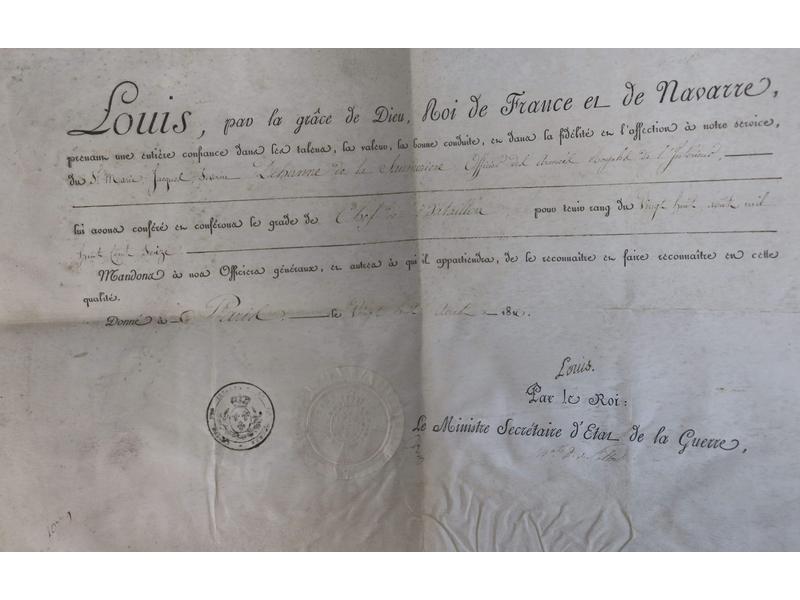 Louis, par la grâce de Dieu, Roi de France et de Navarre,
prenant une entière confiance dans les talens, la valeur, la bonne conduite, et dans la fidélité et l'affection à notre service,
du Sr. Marie Jacques de la Officier des Armées Royales de l'Intérieur,
lui avons conféré et conférons le grade de Chef de Bataillon pour tenir rang du Vingt huit août mil
huit Cent Seize
Mandons à nos Officiers généraux, et autres à qui il appartiendra, de le reconnaître et faire reconnaître en cette
qualité.
Donné à Paris le Vingt août 181
Louis.
Par le Roi:
Le Ministre Secrétaire d'Etat de la Guerre,